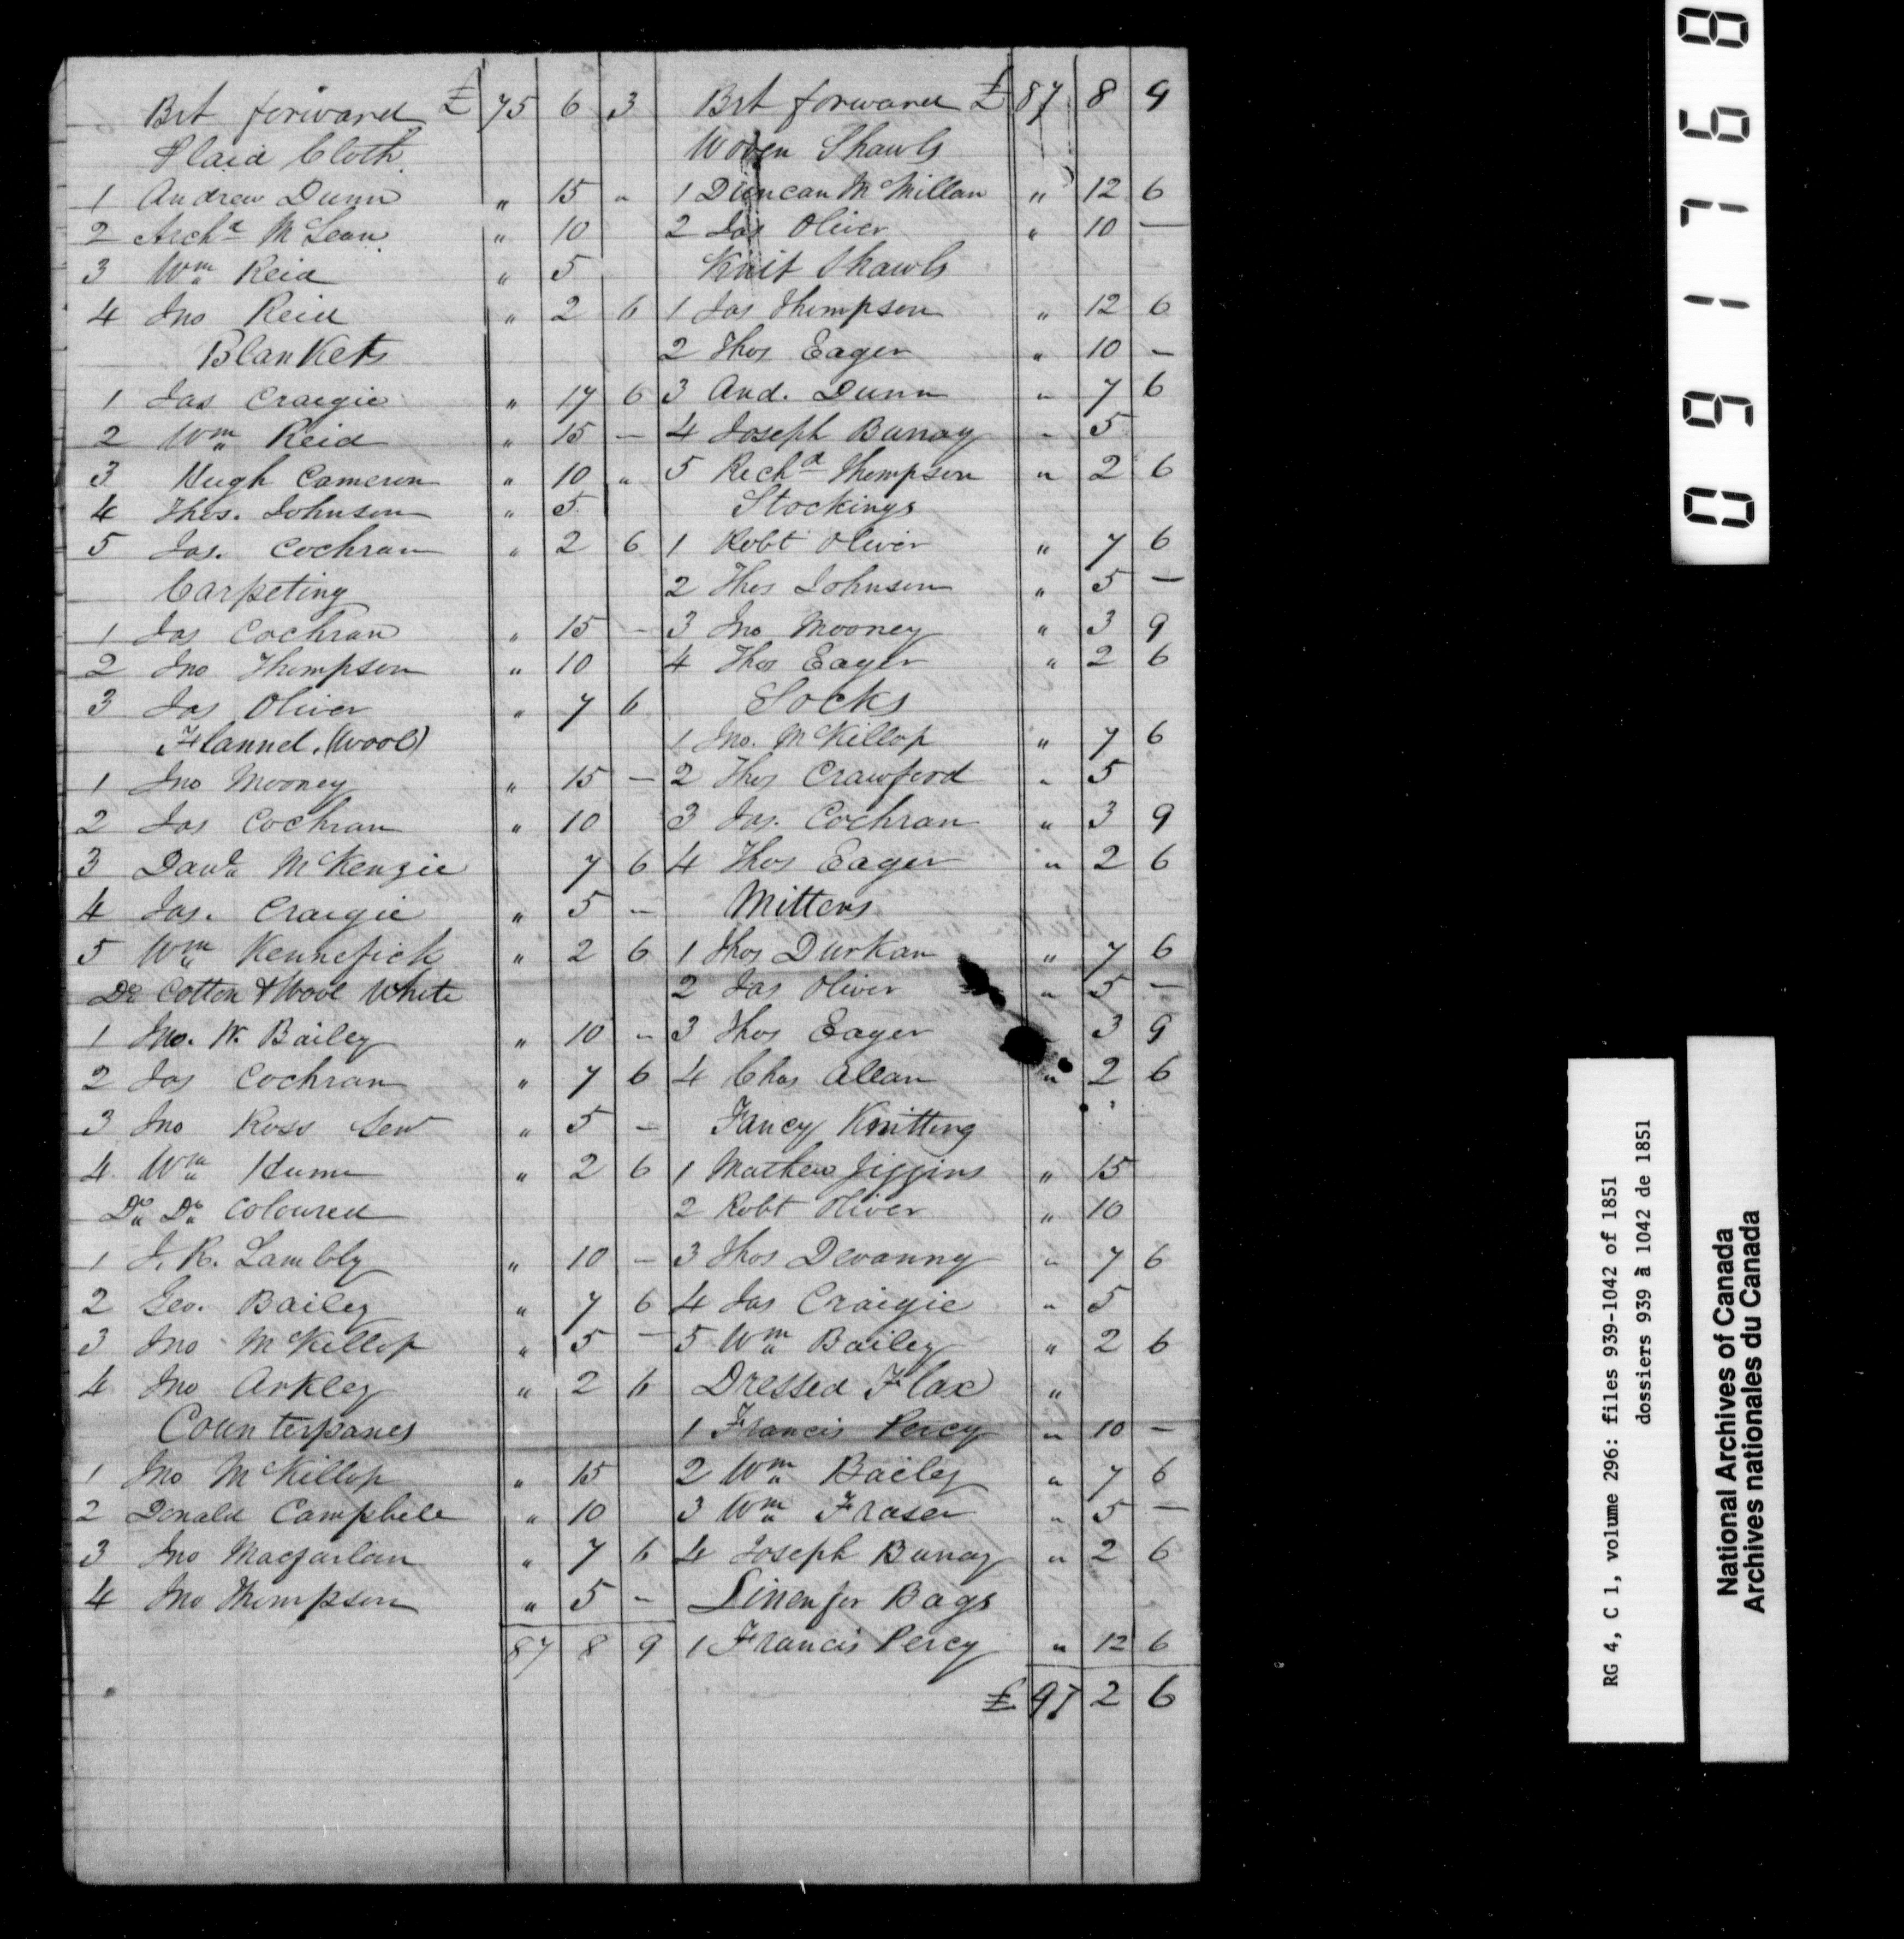 Brt forward £ 75 6 3
Plaid Cloth
1 Andrew Dunn " 15 "
2 Archd McLean " 10
3 Wm Reid " 5
4 Jno Reid " 2 6
Blankets
1 Jas Craigie " 17 6
2 Wm Reid " 15 —
3 Hugh Cameron " 10 "
4 Thos. Johnson " 5
5 Jas. Cochran " 2 6
Carpeting
1 Jas Cochran " 15 —
2 Jno Thompson " 10
3 Jas Oliver " 7 6
Flannel. (Wool)
1 Jno Mooney " 15 —
2 Jas Cochran " 10
3 Davd McKenzie 7 6
4 Jas. Craigie " 5 —
5 Wm Kennefick " 2 6
Do Cotton & Wool White
1 Jno. W. Bailey " 10 —
2 Jas Cochran " 7 6
3 Jno Ross Senr " 5 —
4 Wm Hume " 2 6
Do Do Coloured
1 J. R. Lambly " 10 —
2 Geo. Bailey " 7 6
3 Jno McKillop " 5 —
4 Jno Arkley " 2 6
Counterpanes
1 Jno McKillop " 15
2 Donald Campbell " 10
3 Jno Macfarlan " 7 6
4 Jno Thompson " 5 —
87 8 9
Brt forward £ 87 8 9
Woven Shawls
1 Duncan McMillan " 12 6
2 Jas Oliver " 10 —
Knit Shawls
1 Jas Thompson " 12 6
2 Thos Eager " 10 —
3 And. Dunn " 7 6
4 Joseph " 5
5 Richd Thompson " 2 6
Stockings
1 Robt Oliver " 7 6
2 Thos Johnson " 5 —
3 Jno Mooney " 3 9
4 Thos Eager " 2 6
Socks
1 Jno. McKillop " 7 6
2 Thos Crawford " 5
3 Jas. Cochran " 3 9
4 Thos Eager " 2 6
Mittens
1 Thos Durkan " 7 6
2 Jas Oliver " 5 —
3 Thos Eager 3 9
4 Chas Allan " 2 6
Fancy Knitting
1 Mathew Jiggins " 15
2 Robt Oliver " 10
3 Thos Devanny " 7 6
4 Jas Craigie " 5
5 Wm Bailey " 2 6
Dressed Flax "
1 Francis Percy " 10 —
2 Wm Bailey " 7 6
3 Wm Fraser " 5 —
4 Joseph " 2 6
Linen for Bags
1 Francis Percy " 12 6
£ 97 2 6
091768
RG 4, C 1, volume 296: files 939-1042 of 1851
dossiers 939 à 1042 de 1851
National Archives of Canada
Archives nationales du Canada